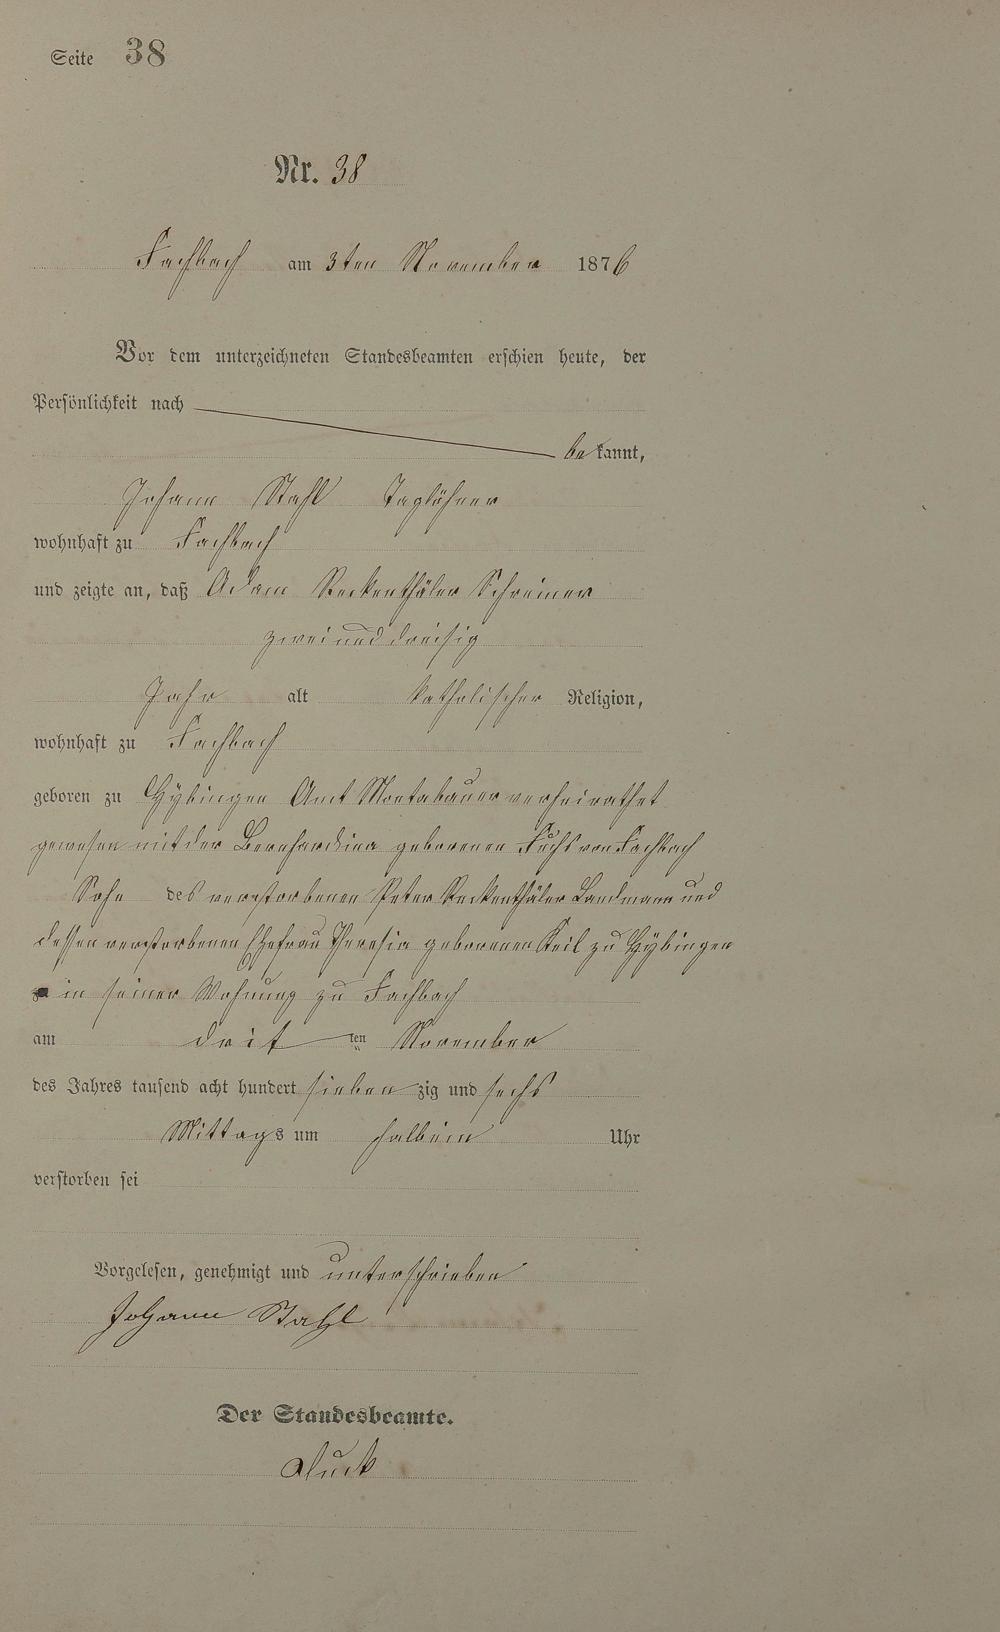 Seite 38
Nr. 38
Fachbach am 3ten November 1876
Vor dem unterzeichneten Standesbeamten erschien heute, der
Persönlichkeit nach
bekannt,
Johann Stahl Taglöhner
wohnhaft zu Fachbach
und zeigte an, daß Adam Reckenthäler Schreiner
zwei und dreisig
Jahr alt katholischer Religion,
wohnhaft zu Fachbach
geboren zu Hybingen Amt Montabauer verheirathet
gewesen mit der Bernhardina geborenen Fuchs von Fachbach
Sohn des verstorbenen Peter Reckenthäler Landmann und
dessen verstorbenen Ehefrau Theresia geborenen Keil zu Hybingen
in seiner Wohnung zu Fachbach
am drit ten November
des Jahres tausend acht hundert sieben zig und sechs
Mittags um halb ein Uhr
verstorben sei
Vorgelesen, genehmigt und unterschrieben
Johann Stahl
Der Standesbeamte.